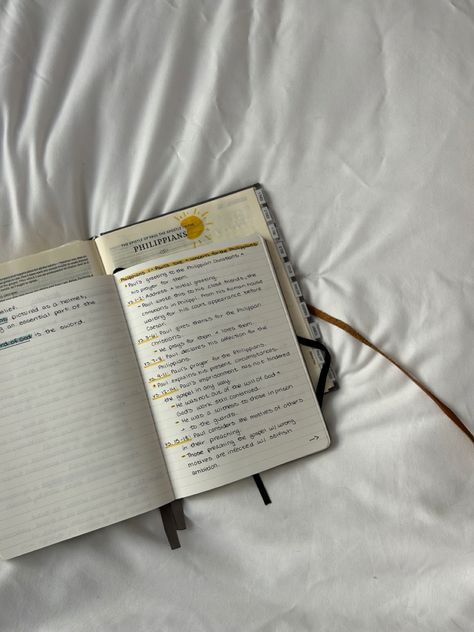 THE EPISTLE OF PAUL THE APOSTLE TO THE
PHILIPPIANS
elief.
pictured as a helmet,
g an essential part of the
of God is the sword
Philippians 1 -
• Paul's greeting to the Philippian Christians, +
his prayer for them.
vs. 1-2: Address + initial greeting.
- Paul wrote this to his close friends, the
christians in Philippi, from his Roman house
waiting for his court appearance before
Caesar.
vs. 3-6: Paul gives thanks for the Philippian
Christians.
- He prays for them + loves them.
vs. 7-8: Paul declares his affection for the
Philippians.
vs. 9-11: Paul's prayer for the Philippians.
• Paul explains his present circumstances.
vs. 12-14: Paul's imprisonment has not hindered
the gospel in any way.
- He was not out of the will of God +
God's work still continued.
- He was a witness to those in prison
+ to the guards.
vs. 15-18: Paul considers the motives of others
in their preaching.
- Those preaching the gospel w/ wrong
motives are infected w/ selfish
ambition.
→